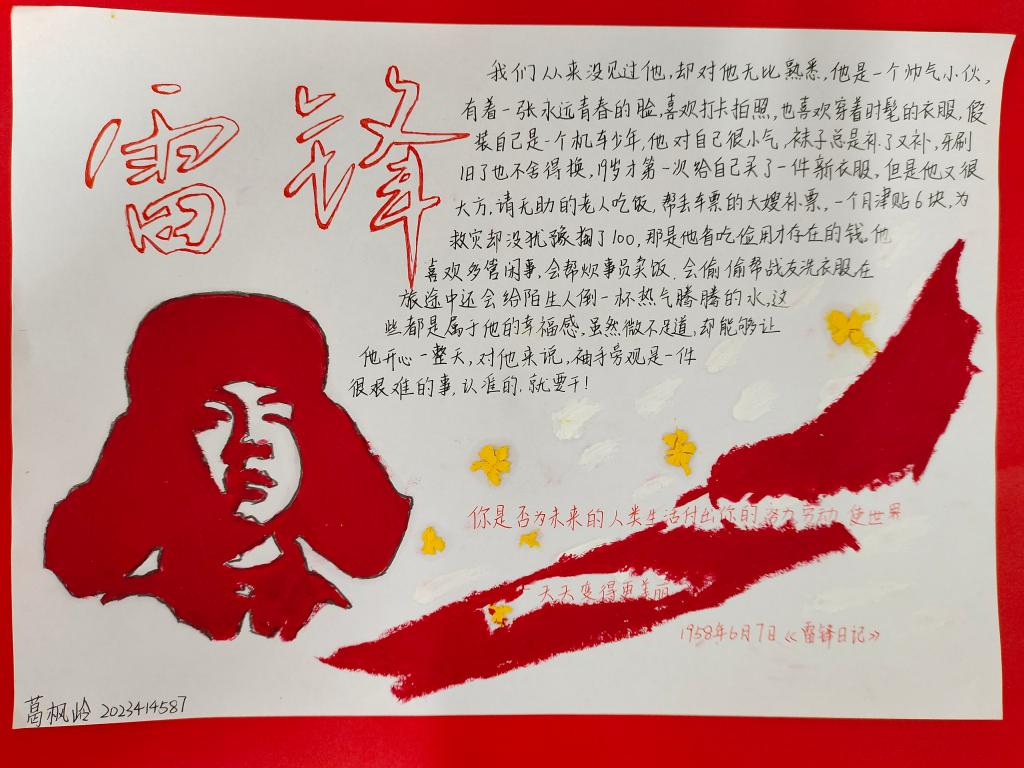 雷锋
我们从来没见过他,却对他无比熟悉,他是一个帅气小伙,
有着一张永远青春的脸,喜欢打卡拍照,也喜欢穿着时髦的衣服,假
装自己是一个机车少年,他对自己很小气,袜子总是补了又补,牙刷
旧了也不舍得换,19岁才第一次给自己买了一件新衣服,但是他又很
大方,请无助的老人吃饭,帮丢车票的大嫂补票,一个月津贴6块,为
救灾却没犹豫捐了100,那是他省吃俭用才存在的钱。他
喜欢多管闲事,会帮炊事员卖饭,会偷偷帮战友洗衣服,在
旅途中还会给陌生人倒一杯热气腾腾的水,这
些都是属于他的幸福感.虽然微不足道,却能够让
他开心一整天,对他来说,袖手旁观是一件
很艰难的事,认准的.就要干!
你是否为未来的人类生活付出你的努力劳动,使世界
一天天变得更美丽
1958年6月7日《雷锋日记》
葛枫岭 2023414587